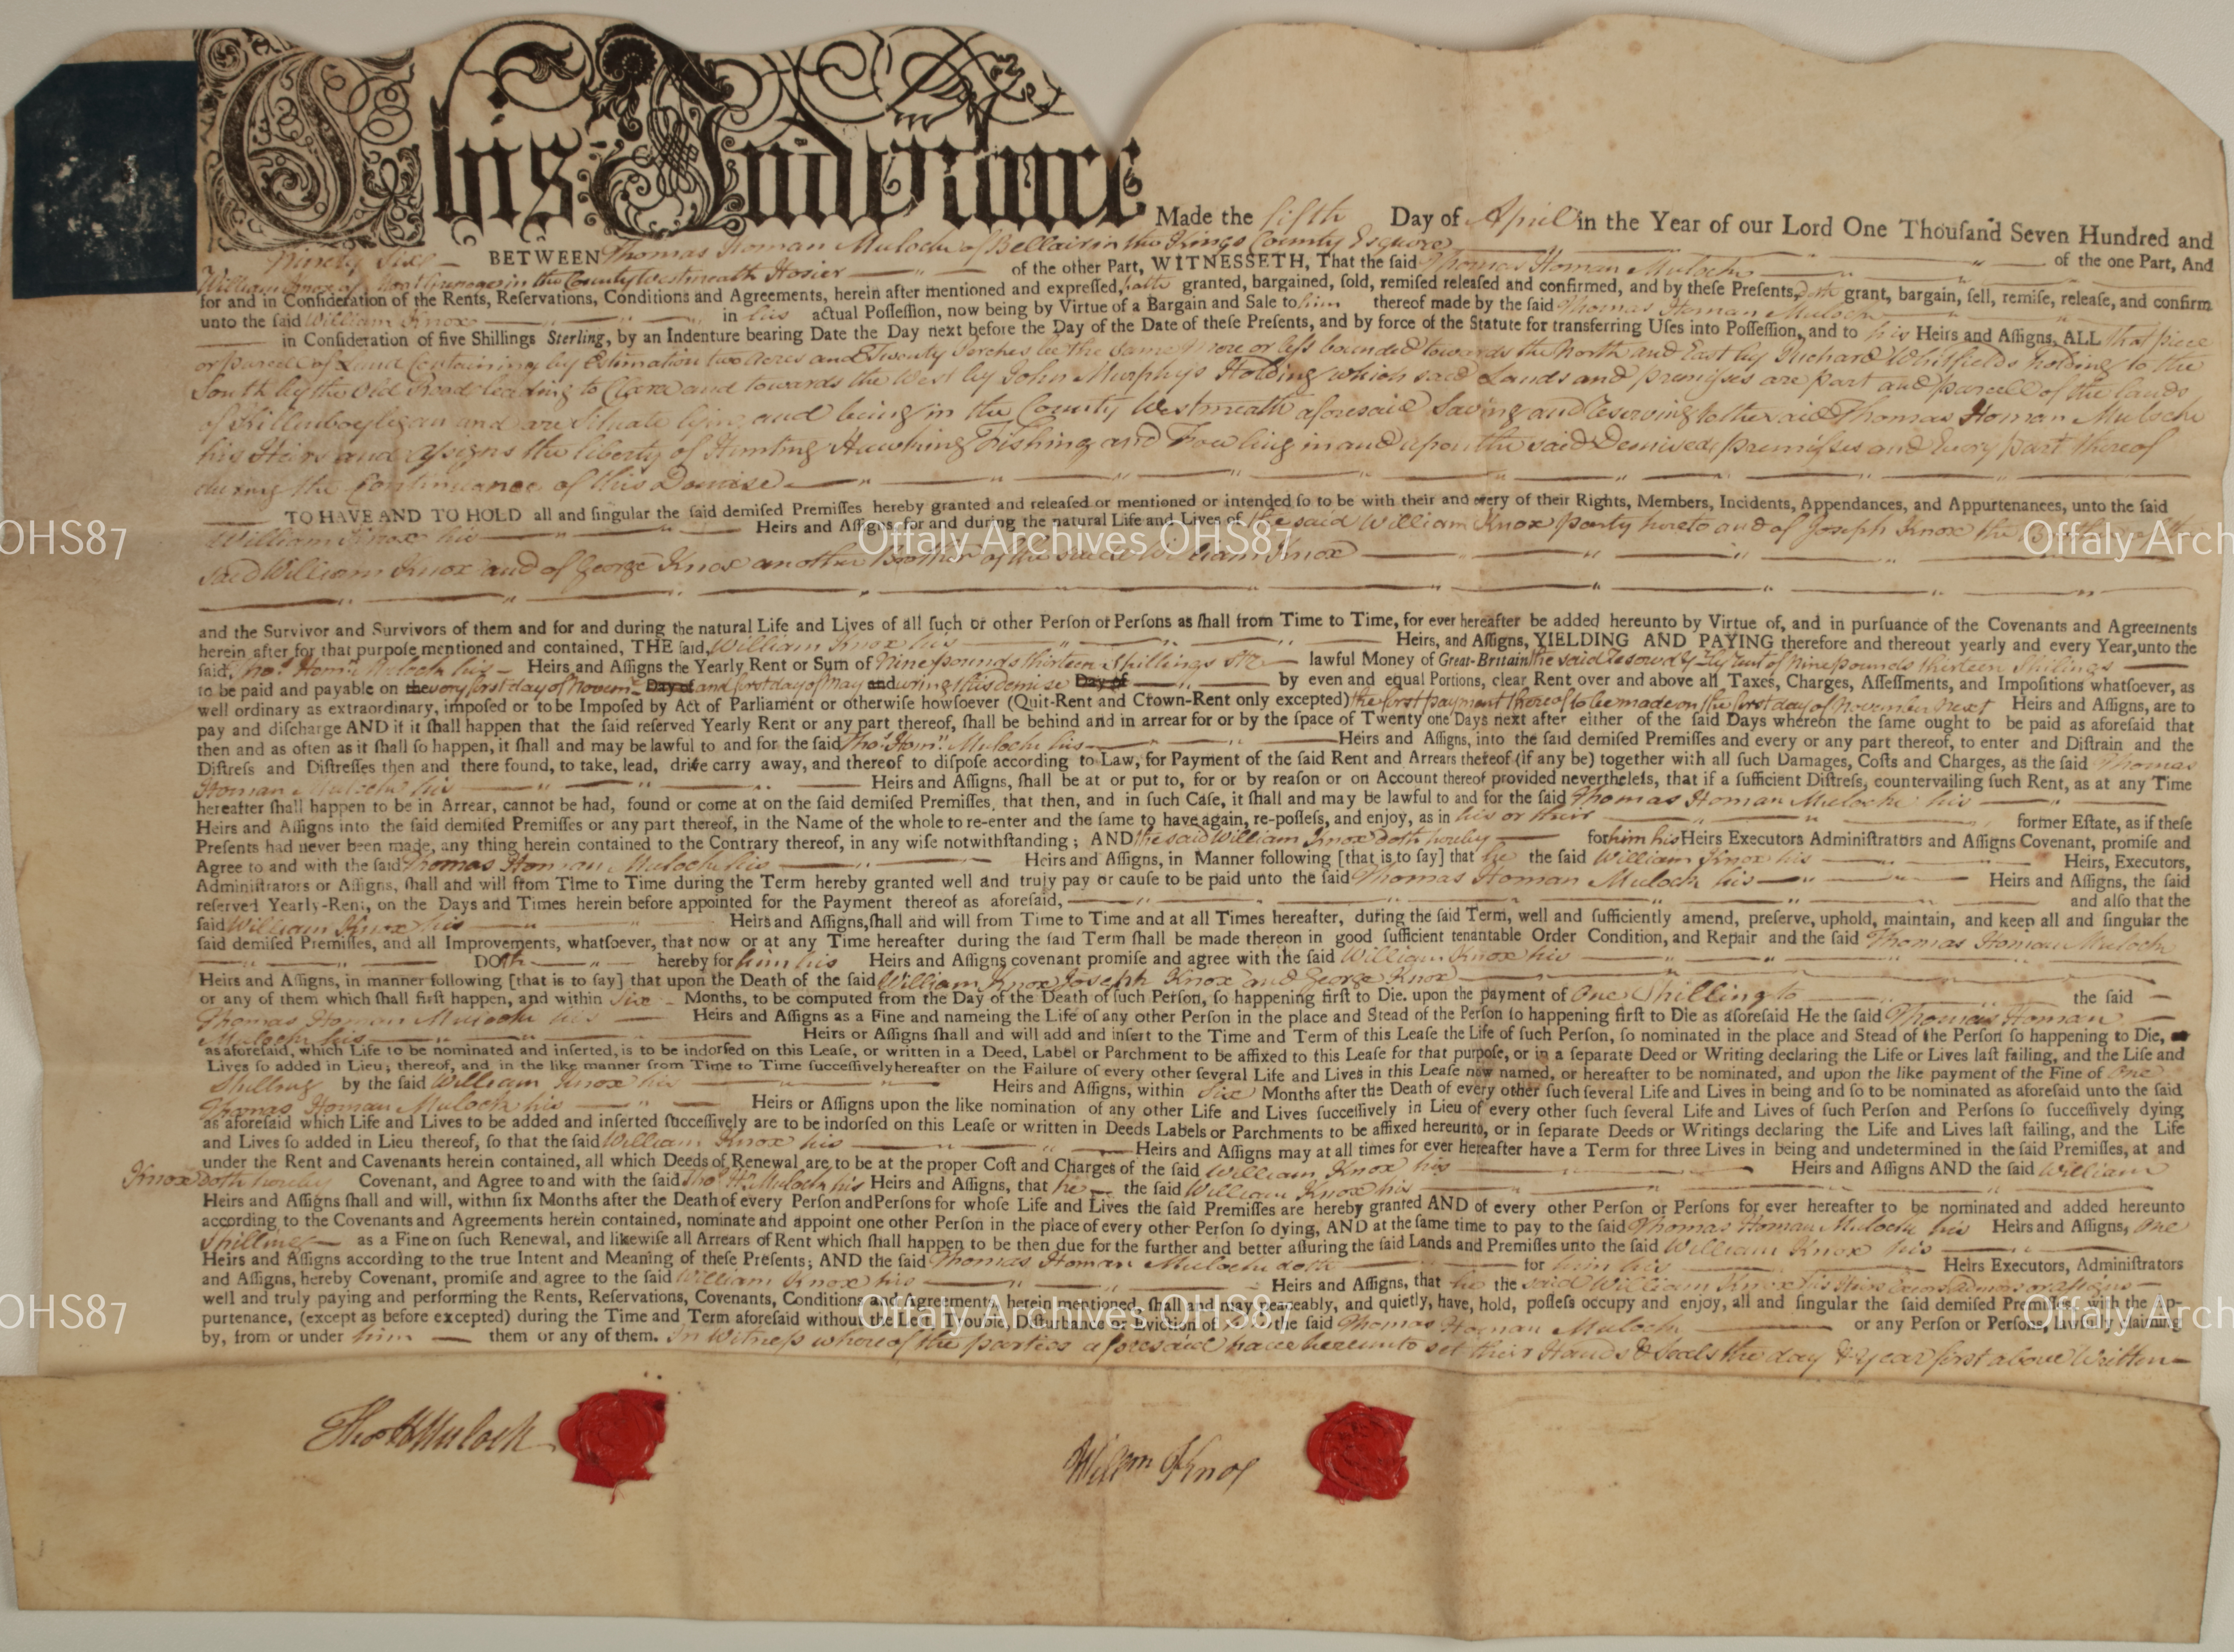 This Indenture Made the fifth Day of April in the Year of our Lord One Thouſand Seven Hundred and
Ninety Six BETWEEN Thomas Homan Mulock of Bellair in the Kings County Esquire of the one Part, And
William Knox of in the County Westmeath Hosier of the other Part, WITNESSETH, That the ſaid Thomas Homan Mulock
for and in Conſideration of the Rents, Reſervations, Conditions and Agreements, herein after mentioned and expreſſed, hath granted, bargained, ſold, remiſed releaſed and confirmed, and by theſe Preſents, doth grant, bargain, ſell, remiſe, releaſe, and confirm
unto the ſaid William Knox in his actual Poſſeſſion, now being by Virtue of a Bargain and Sale to him thereof made by the ſaid Thomas Homan Mulock
in Conſideration of five Shillings Sterling, by an Indenture bearing Date the Day next before the Day of the Date of theſe Preſents, and by force of the Statute for transferring Uſes into Poſſeſſion, and to his Heirs and Aſſigns, ALL that piece
or parcel of Land Containing by Estimation two Acres and Twenty Perches be the same more or less bounded towards the North and East by Richard Whitfields holding to the
South by the Old Road leading to Clara and towards the West by John Murphys Holding which said Lands and premisses are part and parcell of the lands
of Killenboylegan and are Situate lying and being in the County Westmeath aforesaid Saving and Reserving to the said Thomas Homan Mulock
his Heirs and Assigns the liberty of Hunting Hawking Fishing and Fowling in and upon the said Demised premisses and Every part thereof
during the Continuance of this Demise
TO HAVE AND TO HOLD all and ſingular the ſaid demiſed Premiſſes hereby granted and releaſed or mentioned or intended ſo to be with their and every of their Rights, Members, Incidents, Appendances, and Appurtenances, unto the ſaid
William Knox his Heirs and Aſſigns for and during the natural Life and Lives of the said William Knox party hereto and of Joseph Knox the Brother of the
said William Knox and of George Knox another Brother of the said William Knox
and the Survivor and Survivors of them and for and during the natural Life and Lives of all ſuch or other Perſon or Perſons as ſhall from Time to Time, for ever hereafter be added hereunto by Virtue of, and in purſuance of the Covenants and Agreements
herein after for that purpoſe mentioned and contained, THE ſaid, William Knox his Heirs, and Aſſigns, YIELDING AND PAYING therefore and thereout yearly and every Year, unto the
ſaid, Thos. Homn. Mulock his Heirs and Aſſigns the Yearly Rent or Sum of Nine pounds thirteen Shillings Str lawful Money of Great-Britain the said Reserved yearly Rent of Nine pounds thirteen Shillings
to be paid and payable on the every first day of Novemr. Day of and first day of May and during this demise Day of by even and equal Portions, clear Rent over and above all Taxes, Charges, Aſſeſſments, and Impoſitions whatſoever, as
well ordinary as extraordinary, impoſed or to be Impoſed by Act of Parliament or otherwiſe howſoever (Quit-Rent and Crown-Rent only excepted) the first payment thereof to be made on the first day of November next Heirs and Aſſigns, are to
pay and diſcharge AND if it ſhall happen that the ſaid reſerved Yearly Rent or any part thereof, ſhall be behind and in arrear for or by the ſpace of Twenty one Days next after either of the ſaid Days whereon the ſame ought to be paid as aforeſaid that
then and as often as it ſhall ſo happen, it ſhall and may be lawful to and for the ſaid Thos. Homn. Mulock his Heirs and Aſſigns, into the ſaid demiſed Premiſſes and every or any part thereof, to enter and Diſtrain and the
Diſtreſs and Diſtreſſes then and there found, to take, lead, drive carry away, and thereof to diſpoſe according to Law, for Payment of the ſaid Rent and Arrears thereof (if any be) together with all ſuch Damages, Coſts and Charges, as the ſaid Thomas
Homan Mulock his Heirs and Aſſigns, ſhall be at or put to, for or by reaſon or on Account thereof provided nevertheleſs, that if a ſufficient Diſtreſs, countervailing ſuch Rent, as at any Time
hereafter ſhall happen to be in Arrear, cannot be had, found or come at on the ſaid demiſed Premiſſes, that then, and in ſuch Caſe, it ſhall and may be lawful to and for the ſaid Thomas Homan Mulock his
Heirs and Aſſigns into the ſaid demiſed Premiſſes or any part thereof, in the Name of the whole to re-enter and the ſame to have again, re-poſſeſs, and enjoy, as in his or their former Eſtate, as if theſe
Preſents had never been made, any thing herein contained to the Contrary thereof, in any wiſe notwithſtanding; AND the said William Knox doth hereby for him his Heirs Executors Adminiſtrators and Aſſigns Covenant, promiſe and
Agree to and with the ſaid Thomas Homan Mulock his Heirs and Aſſigns, in Manner following [that is to ſay] that he the ſaid William Knox his Heirs, Executors,
Adminiſtrators or Aſſigns, ſhall and will from Time to Time during the Term hereby granted well and truly pay or cauſe to be paid unto the ſaid Thomas Homan Mulock his Heirs and Aſſigns, the ſaid
reſerved Yearly-Rent, on the Days and Times herein before appointed for the Payment thereof as aforeſaid, and alſo that the
ſaid William Knox his Heirs and Aſſigns, ſhall and will from Time to Time and at all Times hereafter, during the ſaid Term, well and ſufficiently amend, preſerve, uphold, maintain, and keep all and ſingular the
ſaid demiſed Premiſſes, and all Improvements, whatſoever, that now or at any Time hereafter during the ſaid Term ſhall be made thereon in good ſufficient tenantable Order Condition, and Repair and the ſaid Thomas Homan Mulock
DOth hereby for him his Heirs and Aſſigns covenant promiſe and agree with the ſaid William Knox his
Heirs and Aſſigns, in manner following [that is to ſay] that upon the Death of the ſaid William Knox Joseph Knox and George Knox
or any of them which ſhall firſt happen, and within Six Months, to be computed from the Day of the Death of ſuch Perſon, ſo happening firſt to Die. upon the payment of One Shilling to the ſaid
Thomas Homan Mulock his Heirs and Aſſigns as a Fine and nameing the Life of any other Perſon in the place and Stead of the Perſon ſo happening firſt to Die as aforeſaid He the ſaid Thomas Homan
Mulock his Heirs or Aſſigns ſhall and will add and inſert to the Time and Term of this Leaſe the Life of ſuch Perſon, ſo nominated in the place and Stead of the Perſon ſo happening to Die,
as aforeſaid, which Life to be nominated and inſerted, is to be indorſed on this Leaſe, or written in a Deed, Label or Parchment to be affixed to this Leaſe for that purpoſe, or in a ſeparate Deed or Writing declaring the Life or Lives laſt failing, and the Life and
Lives ſo added in Lieu; thereof, and in the like manner from Time to Time ſucceſſively hereafter on the Failure of every other ſeveral Life and Lives in this Leaſe now named, or hereafter to be nominated, and upon the like payment of the Fine of One
Shilling by the ſaid William Knox his Heirs and Aſſigns, within Six Months after the Death of every other ſuch ſeveral Life and Lives in being and ſo to be nominated as aforeſaid unto the ſaid
Thomas Homan Mulock his Heirs or Aſſigns upon the like nomination of any other Life and Lives ſucceſſively in Lieu of every other ſuch ſeveral Life and Lives of ſuch Perſon and Perſons ſo ſucceſſively dying
as aforeſaid which Life and Lives to be added and inſerted ſucceſſively are to be indorſed on this Leaſe or written in Deeds Labels or Parchments to be affixed hereunto, or in ſeparate Deeds or Writings declaring the Life and Lives laſt failing, and the Life
and Lives ſo added in Lieu thereof, ſo that the ſaid William Knox his Heirs and Aſſigns may at all times for ever hereafter have a Term for three Lives in being and undetermined in the ſaid Premiſſes, at and
under the Rent and Cavenants herein contained, all which Deeds of Renewal are to be at the proper Coſt and Charges of the ſaid William Knox his Heirs and Aſſigns AND the ſaid William
Knox doth hereby Covenant, and Agree to and with the ſaid Thos. Hn. Mulock his Heirs and Aſſigns, that he the ſaid William Knox his
Heirs and Aſſigns ſhall and will, within ſix Months after the Death of every Perſon and Perſons for whoſe Life and Lives the ſaid Premiſſes are hereby granted AND of every other Perſon or Perſons for ever hereafter to be nominated and added hereunto
according to the Covenants and Agreements herein contained, nominate and appoint one other Perſon in the place of every other Perſon ſo dying, AND at the ſame time to pay to the ſaid Thomas Homan Mulock his Heirs and Aſſigns, One
Shilling as a Fine on ſuch Renewal, and likewiſe all Arrears of Rent which ſhall happen to be then due for the further and better aſſuring the ſaid Lands and Premiſſes unto the ſaid William Knox his
Heirs and Aſſigns according to the true Intent and Meaning of theſe Preſents; AND the ſaid Thomas Homan Mulock doth for him his Heirs Executors, Adminiſtrators
and Aſſigns, hereby Covenant, promiſe and agree to the ſaid William Knox his Heirs and Aſſigns, that he the said William Knox his Heirs Exors Admors or assigns
well and truly paying and performing the Rents, Reſervations, Covenants, Conditions and Agreements, herein mentioned, ſhall and may peaceably, and quietly, have, hold, poſſeſs occupy and enjoy, all and ſingular the ſaid demiſed Premiſſes, with the Ap-
purtenance, (except as before excepted) during the Time and Term aforeſaid without the Let, Trouble, Diſturbance or Eviction of the ſaid Thomas Homan Mulock or any Perſon or Perſons, lawfully claiming
by, from or under him them or any of them. In Witness whereof the parties aforesaid have hereunto set their Hands & Seals the day & year first above Written
Thos H Mulock
Willam Knox
OHS87
Offaly Archives OHS87
Offaly Arch
OHS87
Offaly Archives OHS87
Offaly Arch